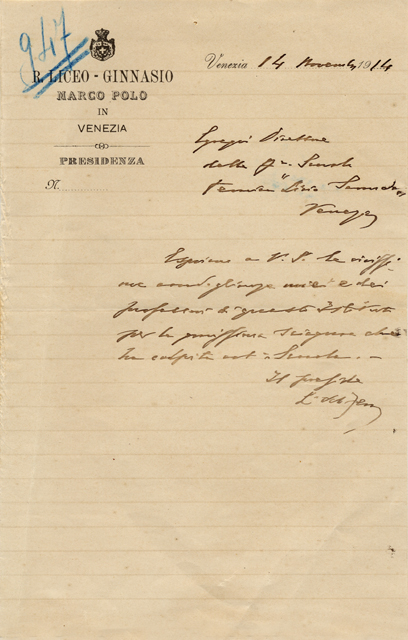 947
R. LICEO - GINNASIO
MARCO POLO
IN
VENEZIA
PRESIDENZA
N.
Venezia 14 Novembre 1914
Egregio Direttore
della Scuola
"Livia
Venezia
Esprimo a V. S. le vivissi
me condoglianze mie e dei
professori di questo Istituto
per la sciagura che
ha colpito cot. Scuola. —
Il preside